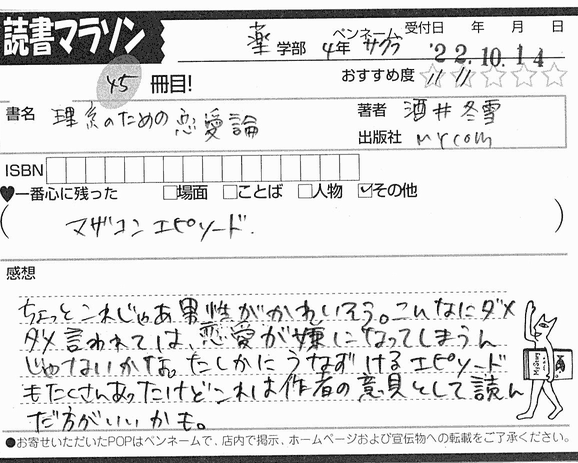 読書マラソン
薬 学部 4年 ペンネーム サクラ 受付日 年 月 日
'22.10.14
45 冊目! おすすめ度
書名 理系のための恋愛論
著者 酒井冬雪
出版社 mycom
ISBN
♥一番心に残った □場面 □ことば □人物 ☑その他
(マザコンエピソード.)
感想
ちょっとこれじゃあ男性がかわいそう。こんなにダメ
ダメ言われては、恋愛が嫌になってしまうん
じゃないかな。たしかにうなずけるエピソード
もたくさんあったけどこれは作者の意見として読ん
だ方がいいかも。
●お寄せいただいたPOPはペンネームで、店内で掲示、ホームページおよび宣伝物への転載をご了承ください。